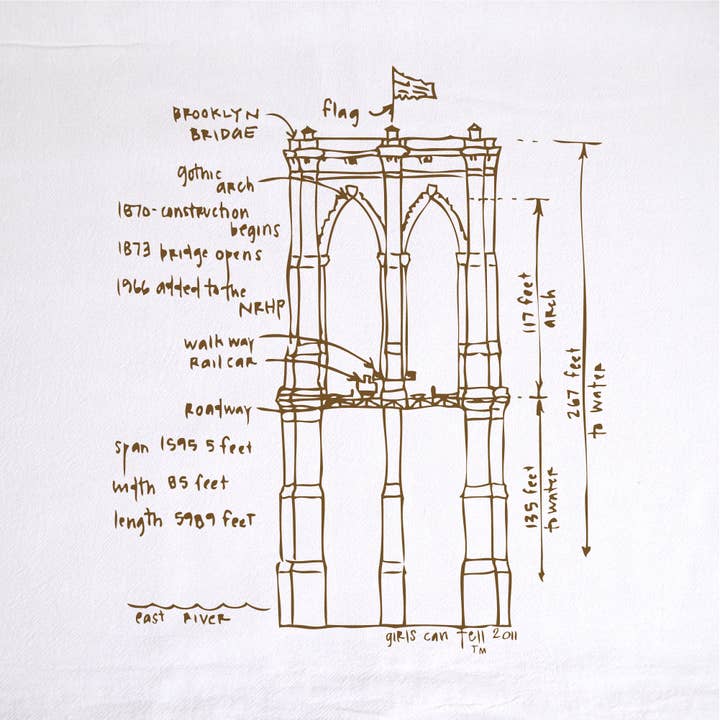 flag
BROOKLYN
BRIDGE
gothic
arch
1870-construction
begins
1873 bridge opens
1966 added to the
NRHP
walkway
RailcaR
Roadway
span 1595 5 feet
width 85 feet
length 5989 feeT
117 feet
arch
267 feet
to water
135 feet
to water
east RIVER
giRls can Tell 2011
TM